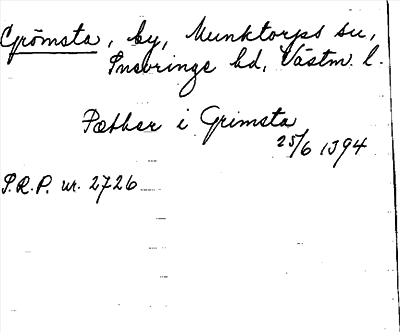 Grömsta, by, Munktorps sn,
Snevringe hd, Västm. l.
Pætber i Grimsta
25/6 1394
S.R.P. nr. 2726